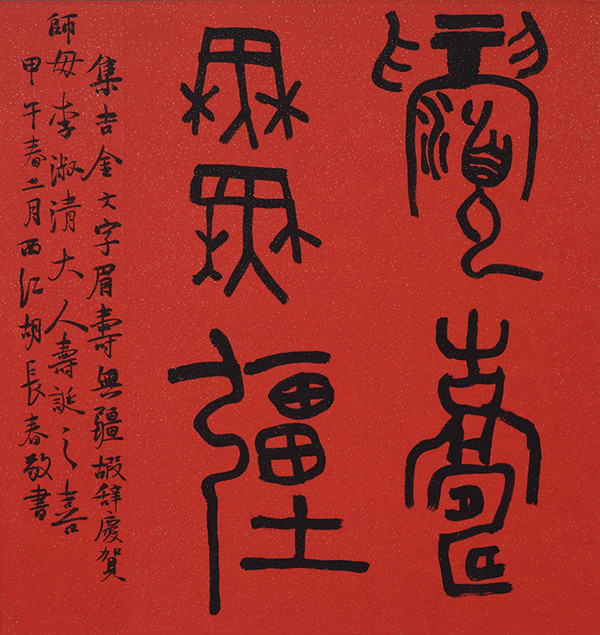 眉壽
無疆
集吉金文字眉壽無疆嘏辭慶賀
師母李淑清大人壽誕之喜
甲午春二月西江胡長春敬書